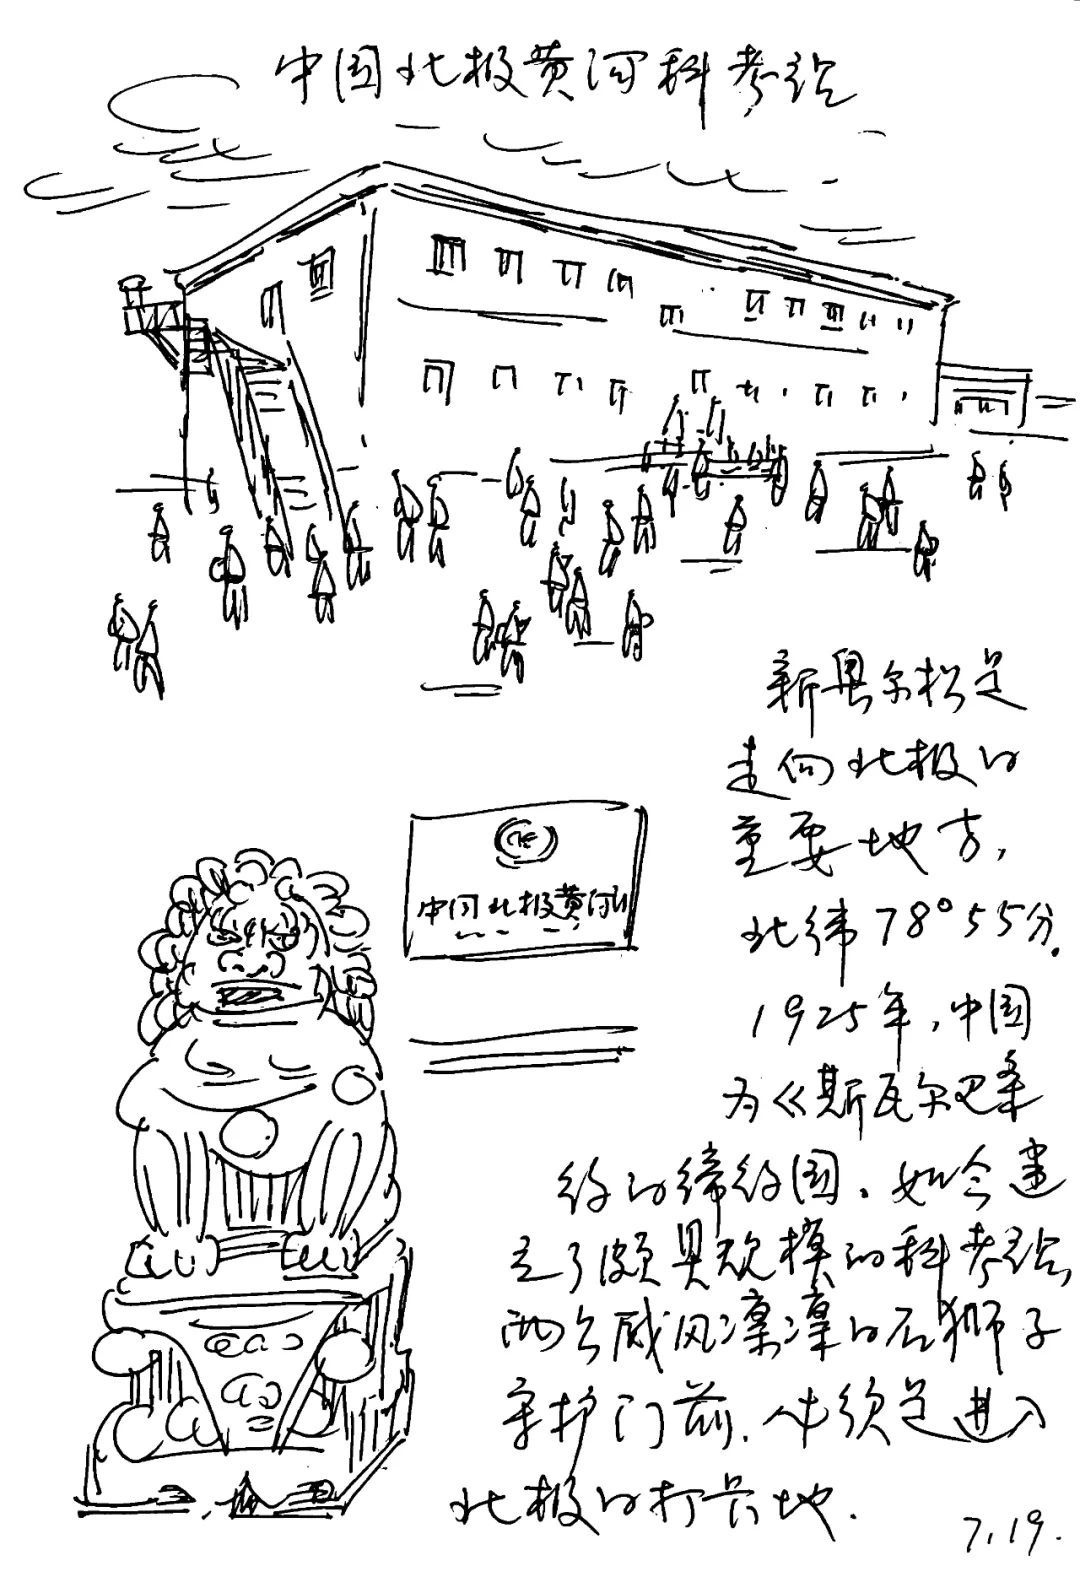 中国北极黄河科考站
中国北极黄河站
新奥尔松是
走向北极的
重要地方,
北纬78°55分.
1925年,中国
为《斯瓦尔巴条
约的缔约国.如今建
立了颇具规模的科考站,
两个威风凛凛的石狮子
守护门前.
北极的打卡地.
7.19.